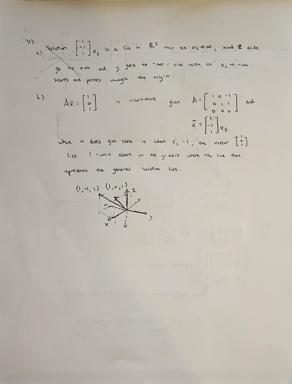 a) Solution [1 -1 1] x₃ is a line in R³ that as x₃→∞, x and z also
go to +∞ and y goes to -∞ / vice versa as x₃ → -∞.
and passes through the origin.
b) Ax̄ = [1 0 1] is inconsistent given A = [1 0 -1; 0 1 1; 0 0 0] and
x̄ = [1 -1 1] x₃
where it does get close is when x₃ = 1, the vector
lies 1 unit above on the y-axis where the line that
represents the general solution lies.
(1,-1,1) (1,0,1) z
x y